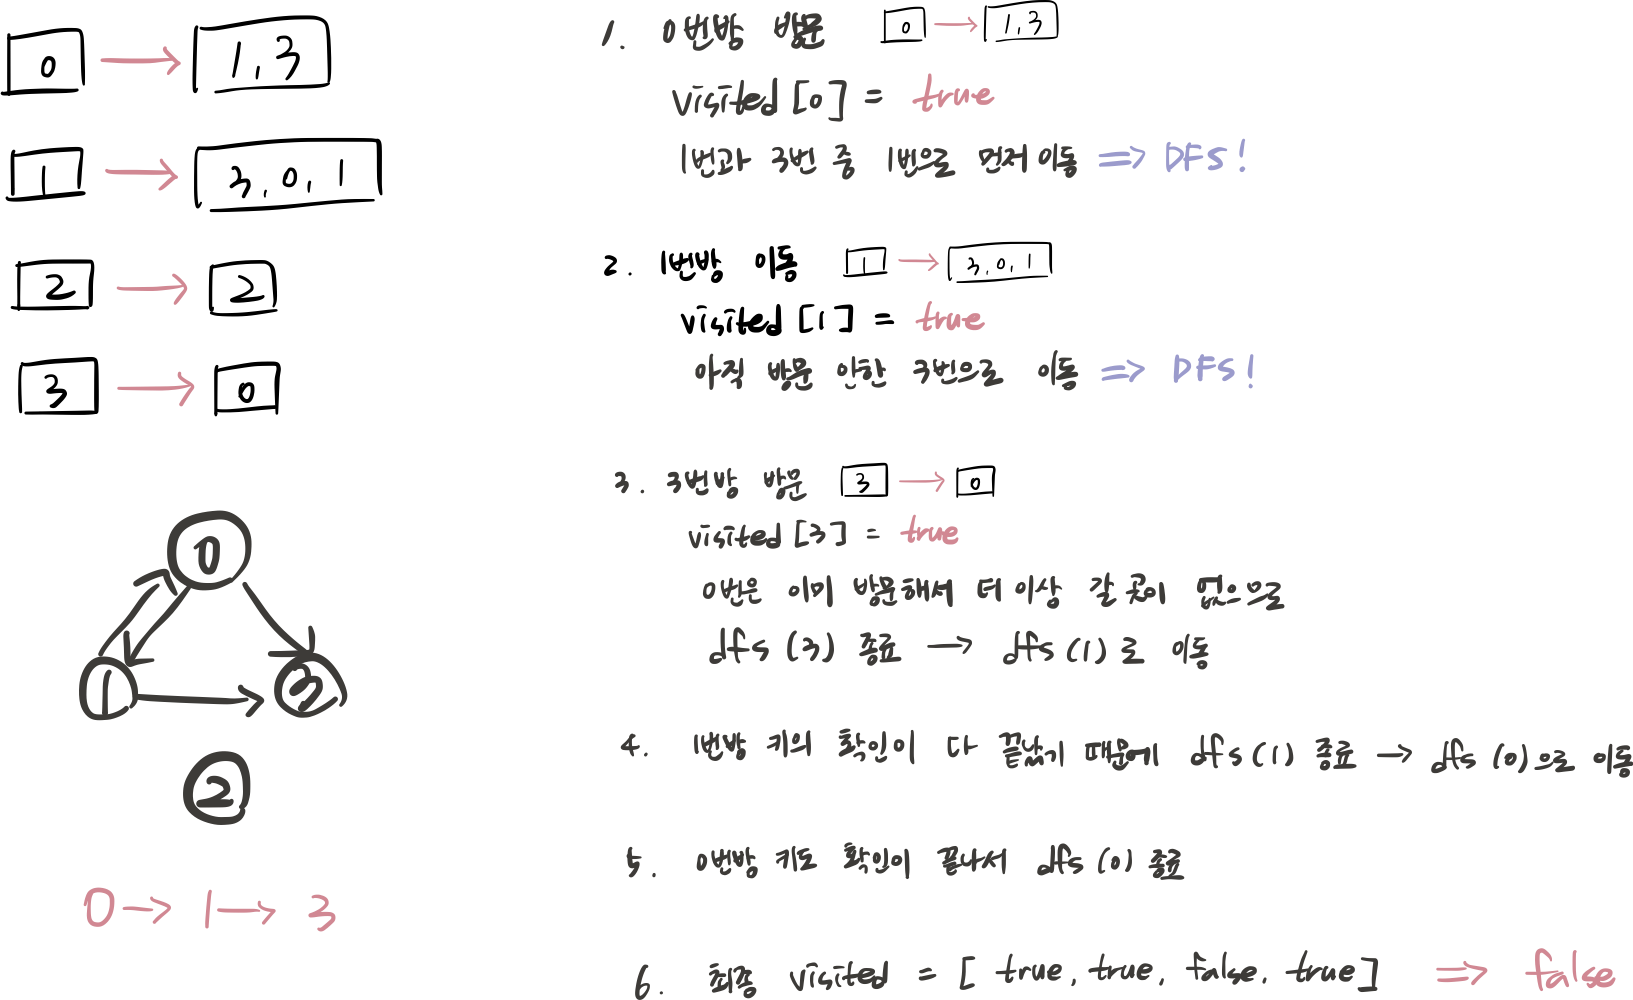 0 → 1,3
1 → 3,0,1
2 → 2
3 → 0
0
1 3
2
0 → 1 → 3
1. 0번방 방문 0 → 1,3
visited [0] = true
1번과 3번 중 1번으로 먼저 이동 ⇒ DFS!
2. 1번방 이동 1 → 3,0,1
visited [1] = true
아직 방문 안한 3번으로 이동 ⇒ DFS!
3. 3번방 방문 3 → 0
visited [3] = true
0번은 이미 방문해서 더 이상 갈 곳이 없으므로
dfs (3) 종료 → dfs (1)로 이동
4. 1번방 키의 확인이 다 끝났기 때문에 dfs (1) 종료 → dfs (0)으로 이동
5. 0번방 키도 확인이 끝나서 dfs (0) 종료
6. 최종 visited = [ true, true, false, true] ⇒ false